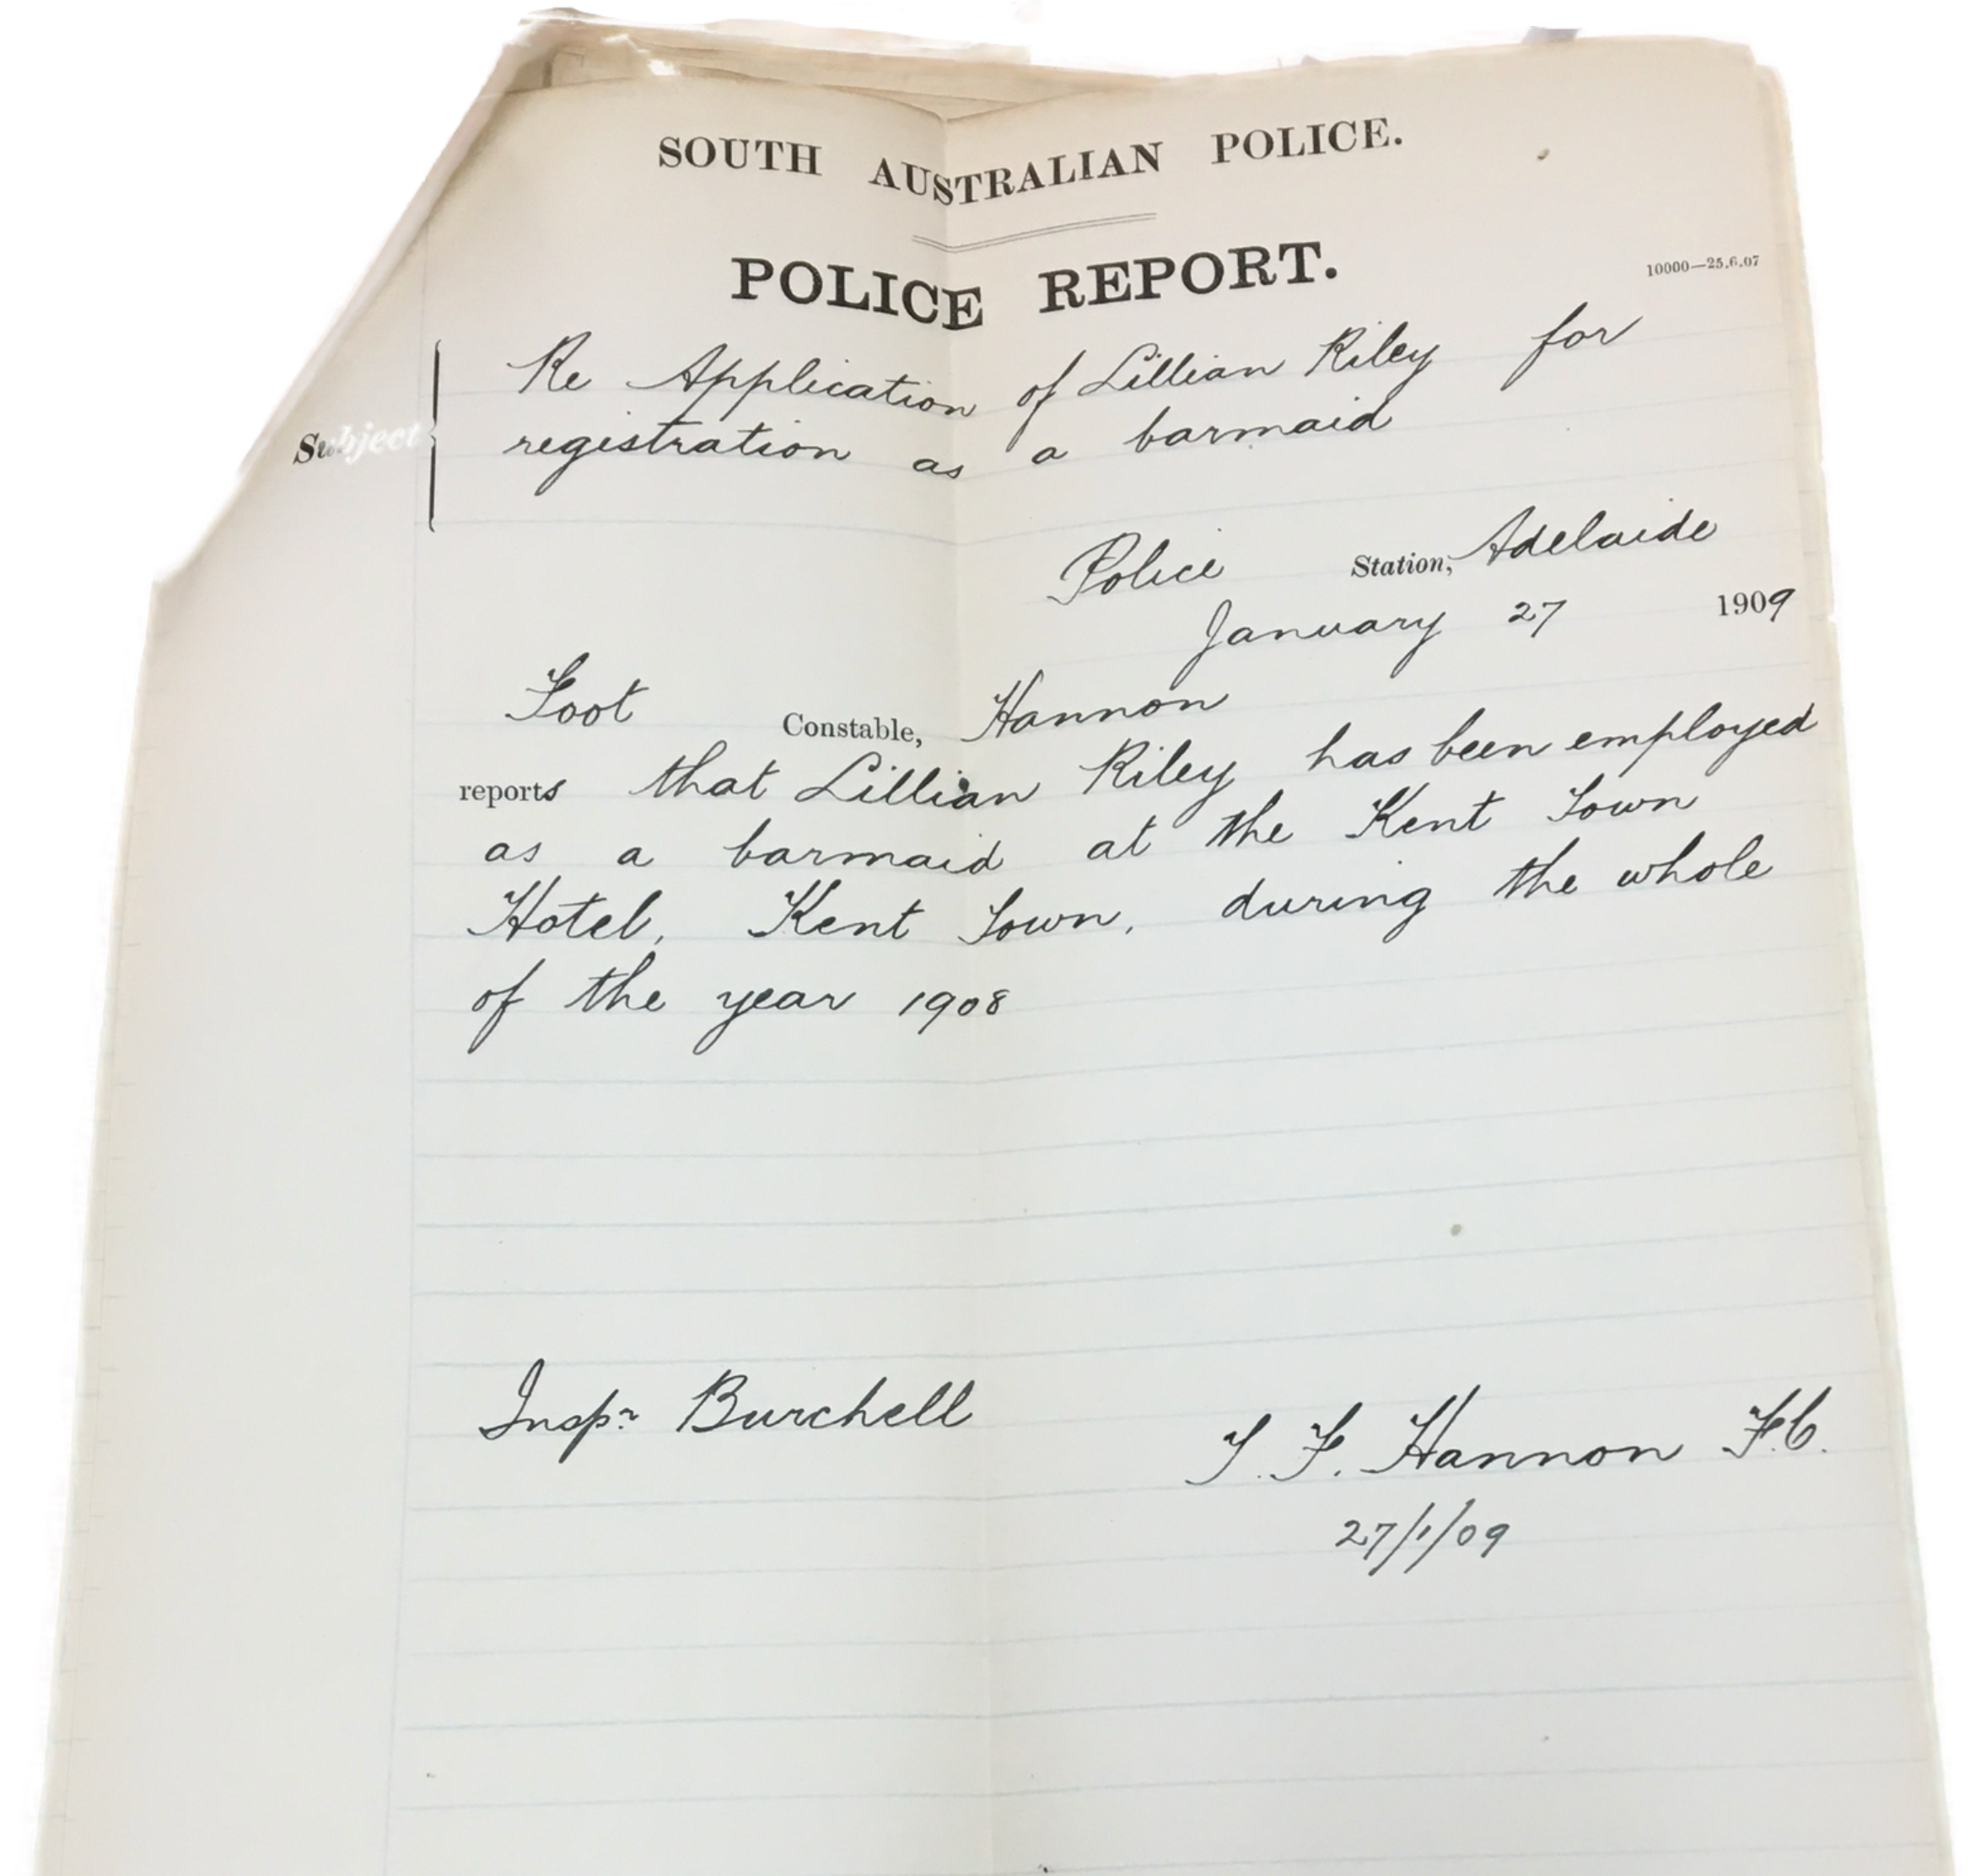 SOUTH AUSTRALIAN POLICE.
POLICE REPORT.
10000—25.6.07
Subject
Re Application of Lillian Riley for
registration as a barmaid
Police Station, Adelaide
January 27 1909
Foot Constable, Hannon
reports that Lillian Riley has been employed
as a barmaid at the Kent Town
Hotel, Kent Town, during the whole
of the year 1908
Inspr Burchell
T. F. Hannon F.C.
27/1/09